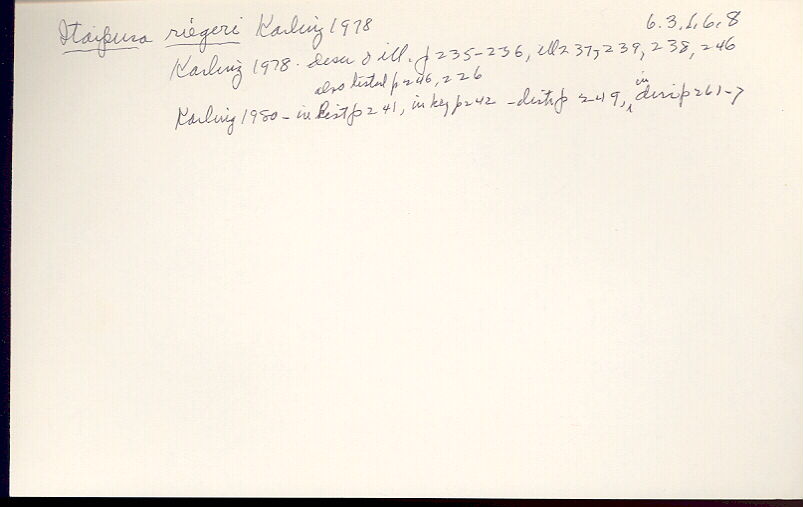 Itaipusa riegeri Karling 1978 6.3.1.6.8
Karling 1978. descr & ill. p 235-236, ill 237, 239, 238, 246
also listed p 246, 226
Karling 1980 - in list p 241, in key p 242 - distr p 249, in